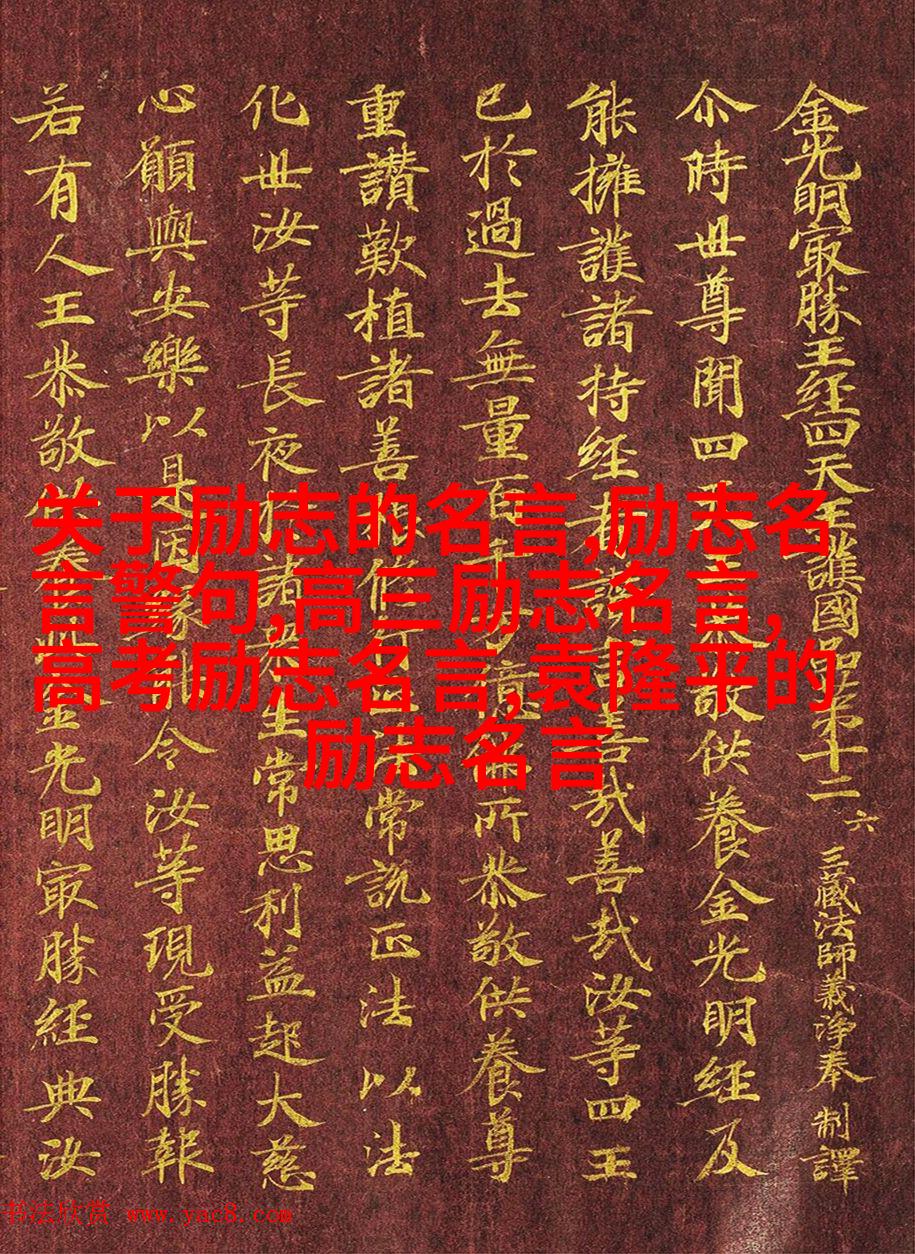 金光明冣勝王經四天王護國品第十二 六 三藏法師義淨奉 制譯
尒時世尊聞四天王恭敬供養金光明經及
能擁護諸持經者讚言善哉善哉汝等四王
已於過去無量百千億佛所恭敬供養尊
重讚歎植諸善根修行正法常說正法以法
化世汝等長夜於諸衆生常思利益起大慈
心願與安樂以是因緣令汝等現受勝報
若有人王恭敬供養此金光明冣勝經典汝
关于励志的名言,励志名
言警句,高三励志名言,
高考励志名言,袁隆平的
励志名言
书法欣赏 www.yac8.com